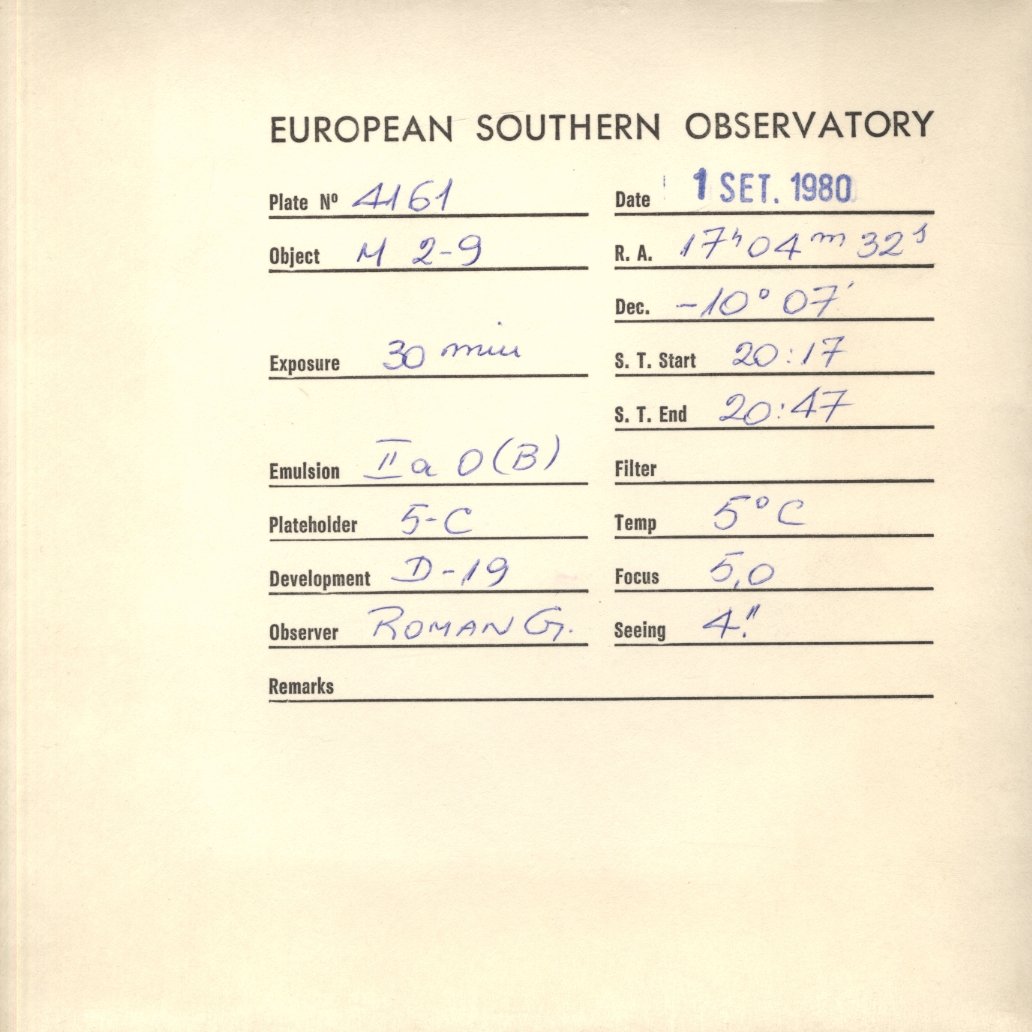 EUROPEAN SOUTHERN OBSERVATORY
Plate Nº 4161 Date 1 SET. 1980
Object M 2-9 R. A. 17ʰ 04ᵐ 32ˢ
Dec. -10° 07'
Exposure 30 min S. T. Start 20:17
S. T. End 20:47
Emulsion IIa O (B) Filter
Plateholder 5-C Temp 5°C
Development D-19 Focus 5,0
Observer ROMAN G. Seeing 4"
Remarks